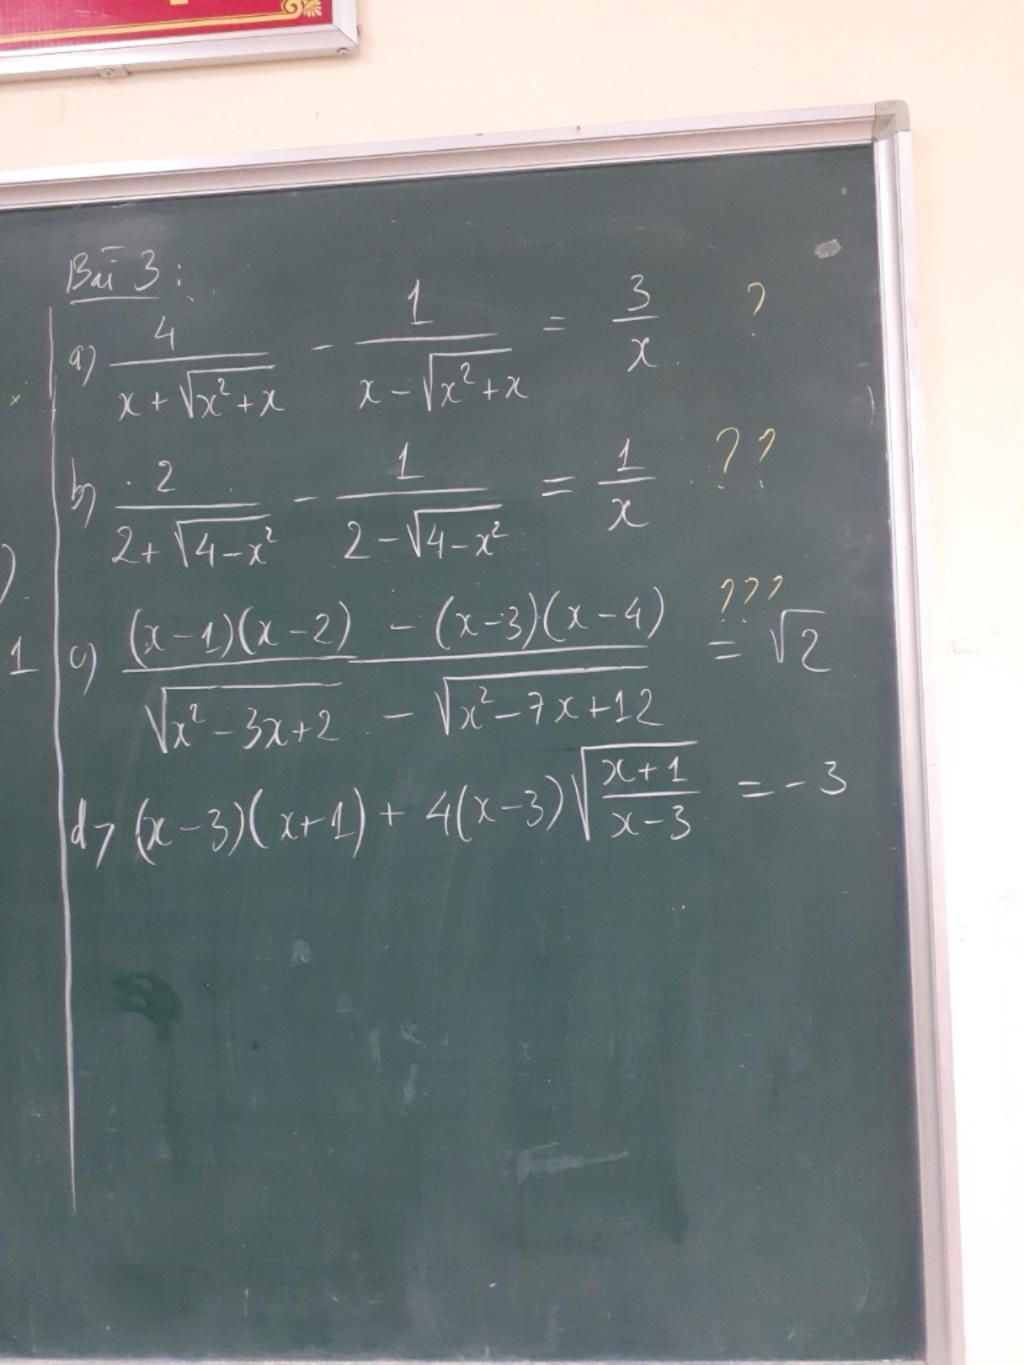 Bài 3:
a) \frac{4}{x+\sqrt{x^2+x}} - \frac{1}{x-\sqrt{x^2+x}} = \frac{3}{x} ?
b) \frac{2}{2+\sqrt{4-x^2}} - \frac{1}{2-\sqrt{4-x^2}} = \frac{1}{x} ??
c) \frac{(x-1)(x-2) - (x-3)(x-4)}{\sqrt{x^2-3x+2} - \sqrt{x^2-7x+12}} = \sqrt{2} ???
1
d) (x-3)(x+1) + 4(x-3)\sqrt{\frac{x+1}{x-3}} = -3